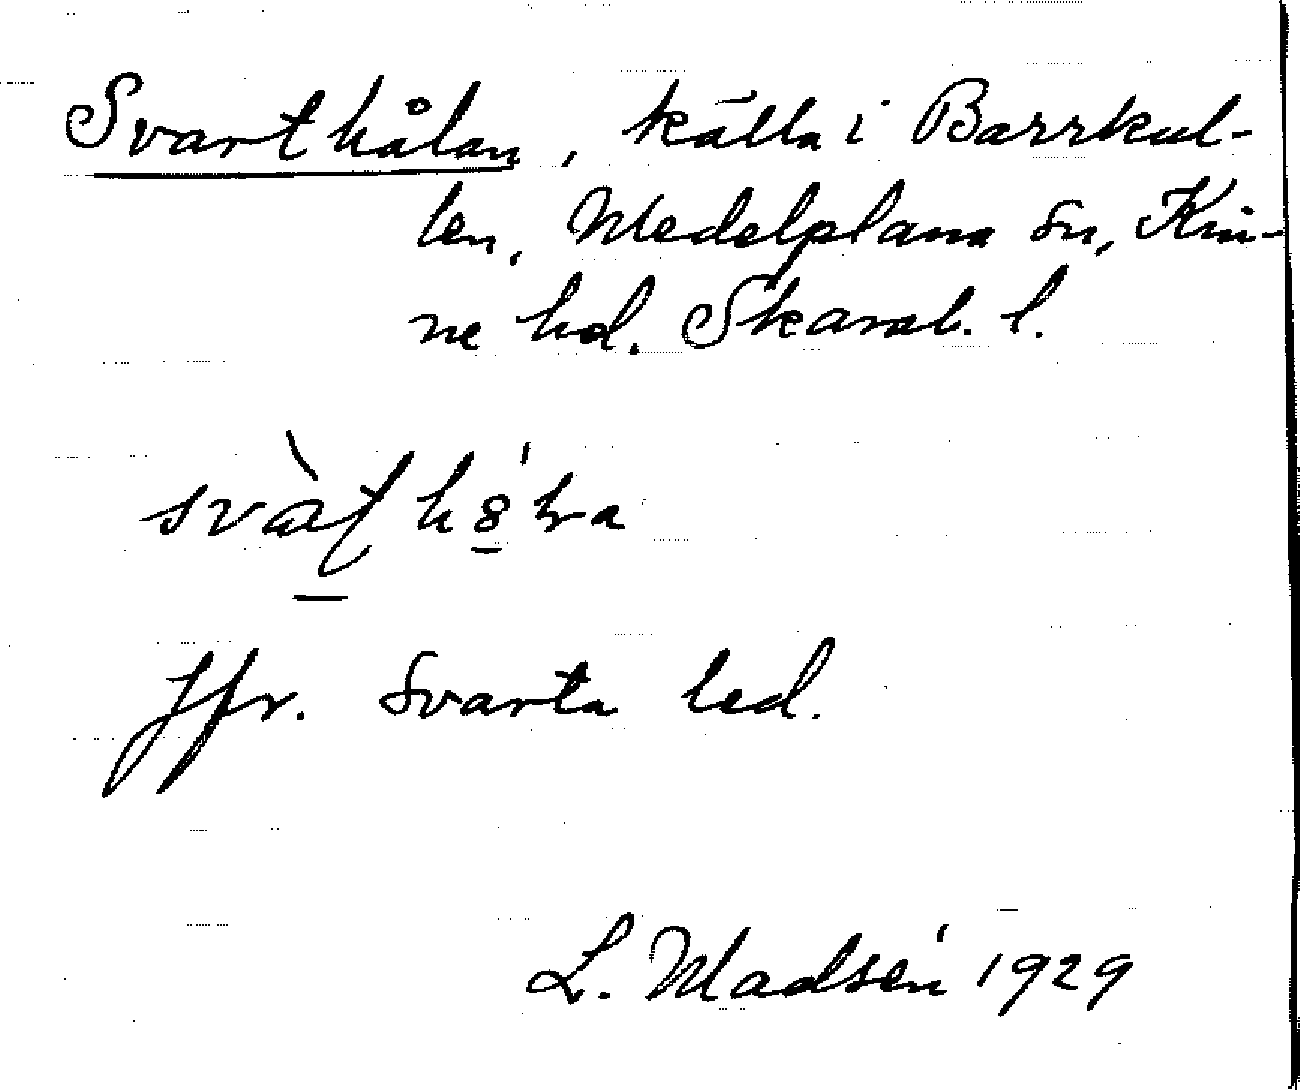 Svarthålan, källa i Barrkul-
len, Medelplana sn, Kin-
ne hd. Skarab. l.
Jfr. Svarta led.
L. Madsén 1929